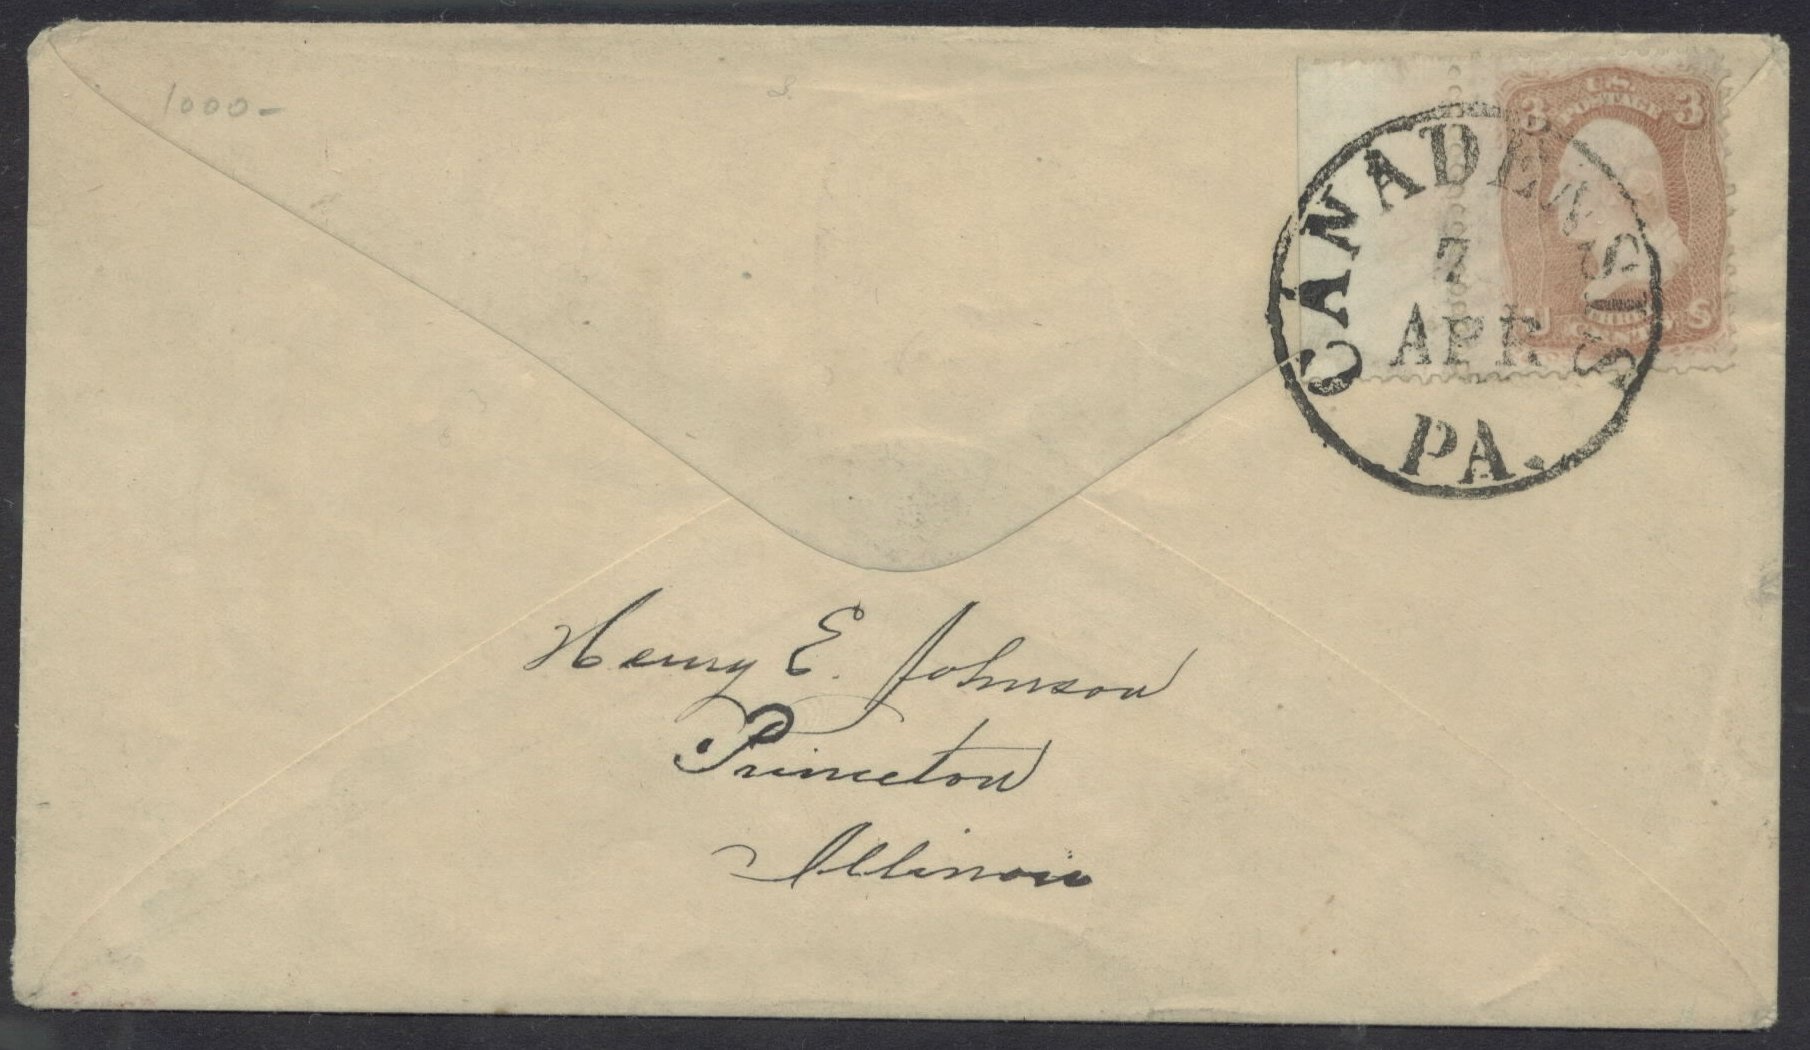 1000-
U.S.
POSTAGE
3 3
CANADENSIS
7
APR
PA.
U S
THREE
CENTS
Henry E. Johnson
Princeton
Illinois